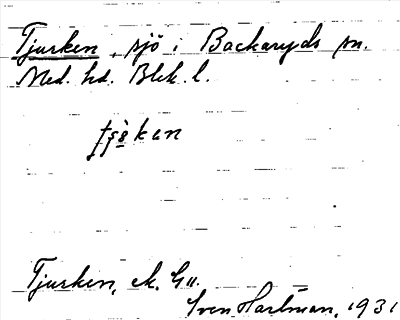 Tjurken, sjö i Backaryds sn.
Med. hd. Blek. l.
Tjurken, ek. Gu.
Sven Hartman, 1931